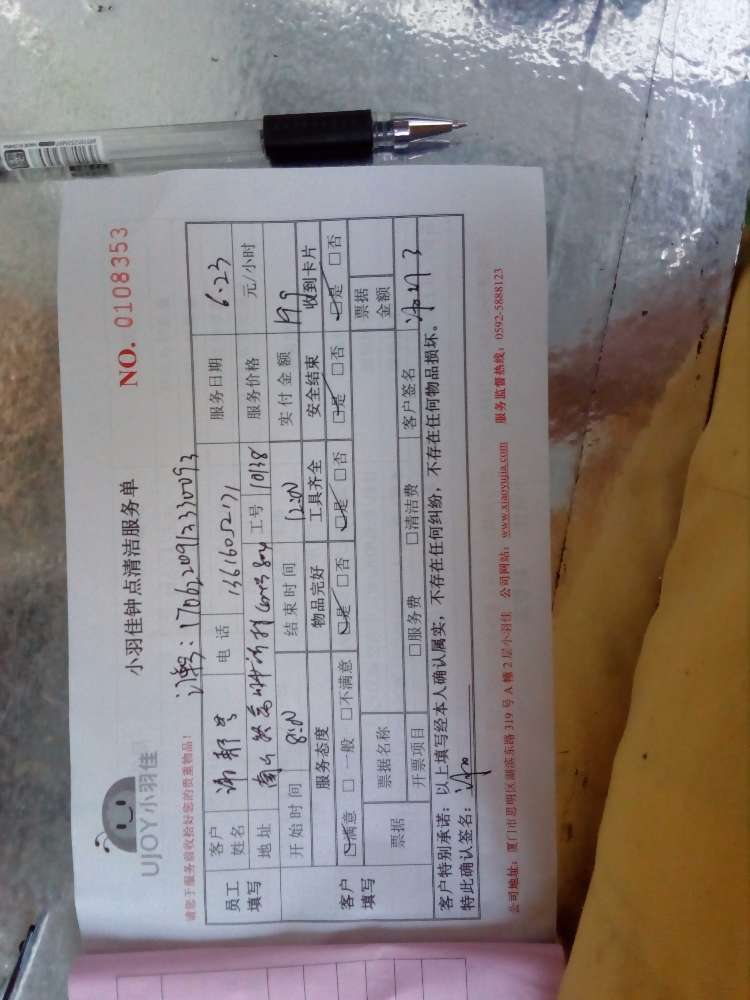 UJOY小羽佳
小羽佳钟点清洁服务单
NO. 0108353
请您于服务前收拾好您的贵重物品!
订单: 1706220912330093
员工填写
客户姓名 电话 服务日期 6.23
地址 工号 10138 服务价格 元/小时
开始时间 8:00 结束时间 12:00 实付金额
客户填写
服务态度 物品完好 工具齐全 安全结束 收到卡片
☑满意 □一般 □不满意 ☑是 □否 ☑是 □否 ☑是 □否 ☑是 □否
票据 票据名称 票据金额
开票项目 □服务费 □清洁费 客户签名
客户特别承诺: 以上填写经本人确认属实, 不存在任何纠纷, 不存在任何物品损坏。
特此确认签名:
公司地址: 厦门市思明区湖滨东路 319 号 A 幢 2 层小羽佳 公司网站: www.xiaoyujia.com 服务监督热线: 0592-5888123